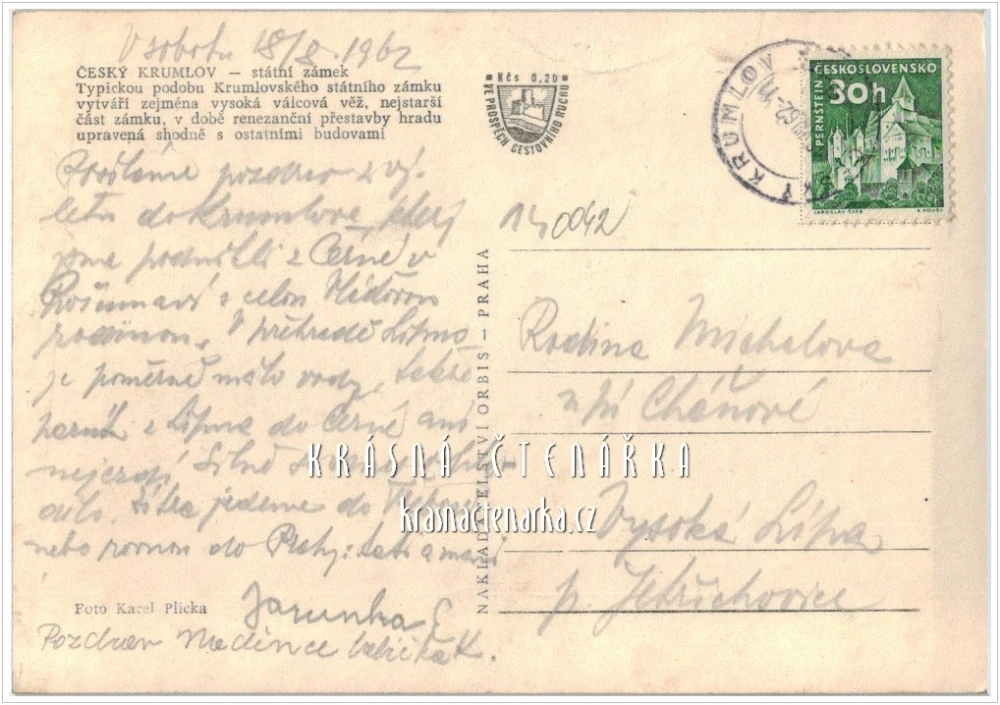 V sobotu 18/8. 1962
ČESKÝ KRUMLOV — státní zámek
Typickou podobu Krumlovského státního zámku
vytváří zejména vysoká válcová věž, nejstarší
část zámku, v době renezanční přestavby hradu
upravená shodně s ostatními budovami
Posíláme pozdrav z vý-
letu do Krumlova, který
jsme podnikli z Černé v
Pošumaví s celou
rodinou. V přehradě Lipno
je poměrně málo vody, takže
parník z Lipna do Černé ani
nejezdí. Silně se
dilo. Zítra jedeme do
nebo rovnou do Prahy: tati a mami
Jarunka
Foto Karel Plicka
Pozdrav
NAKLADATELSTVÍ ORBIS — PRAHA
Kčs 0,20
VE PROSPĚCH CESTOVNÍHO RUCHU
KRUMLOV
ČESKOSLOVENSKO
30h
PERNŠTEJN
JAROSLAV ŠVÁB
0042
Rodina Michalova
u pí Cháňové
Vysoká Lípa
p. Jetřichovice
KRÁSNÁ ČTENÁŘKA
krasnactenarka.cz